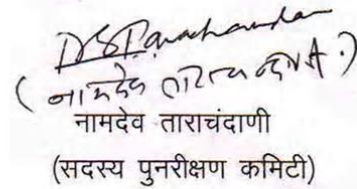 (नामदेव ताराचन्दाणी)
नामदेव ताराचंदाणी
(सदस्य पुनरीक्षण कमिटी)